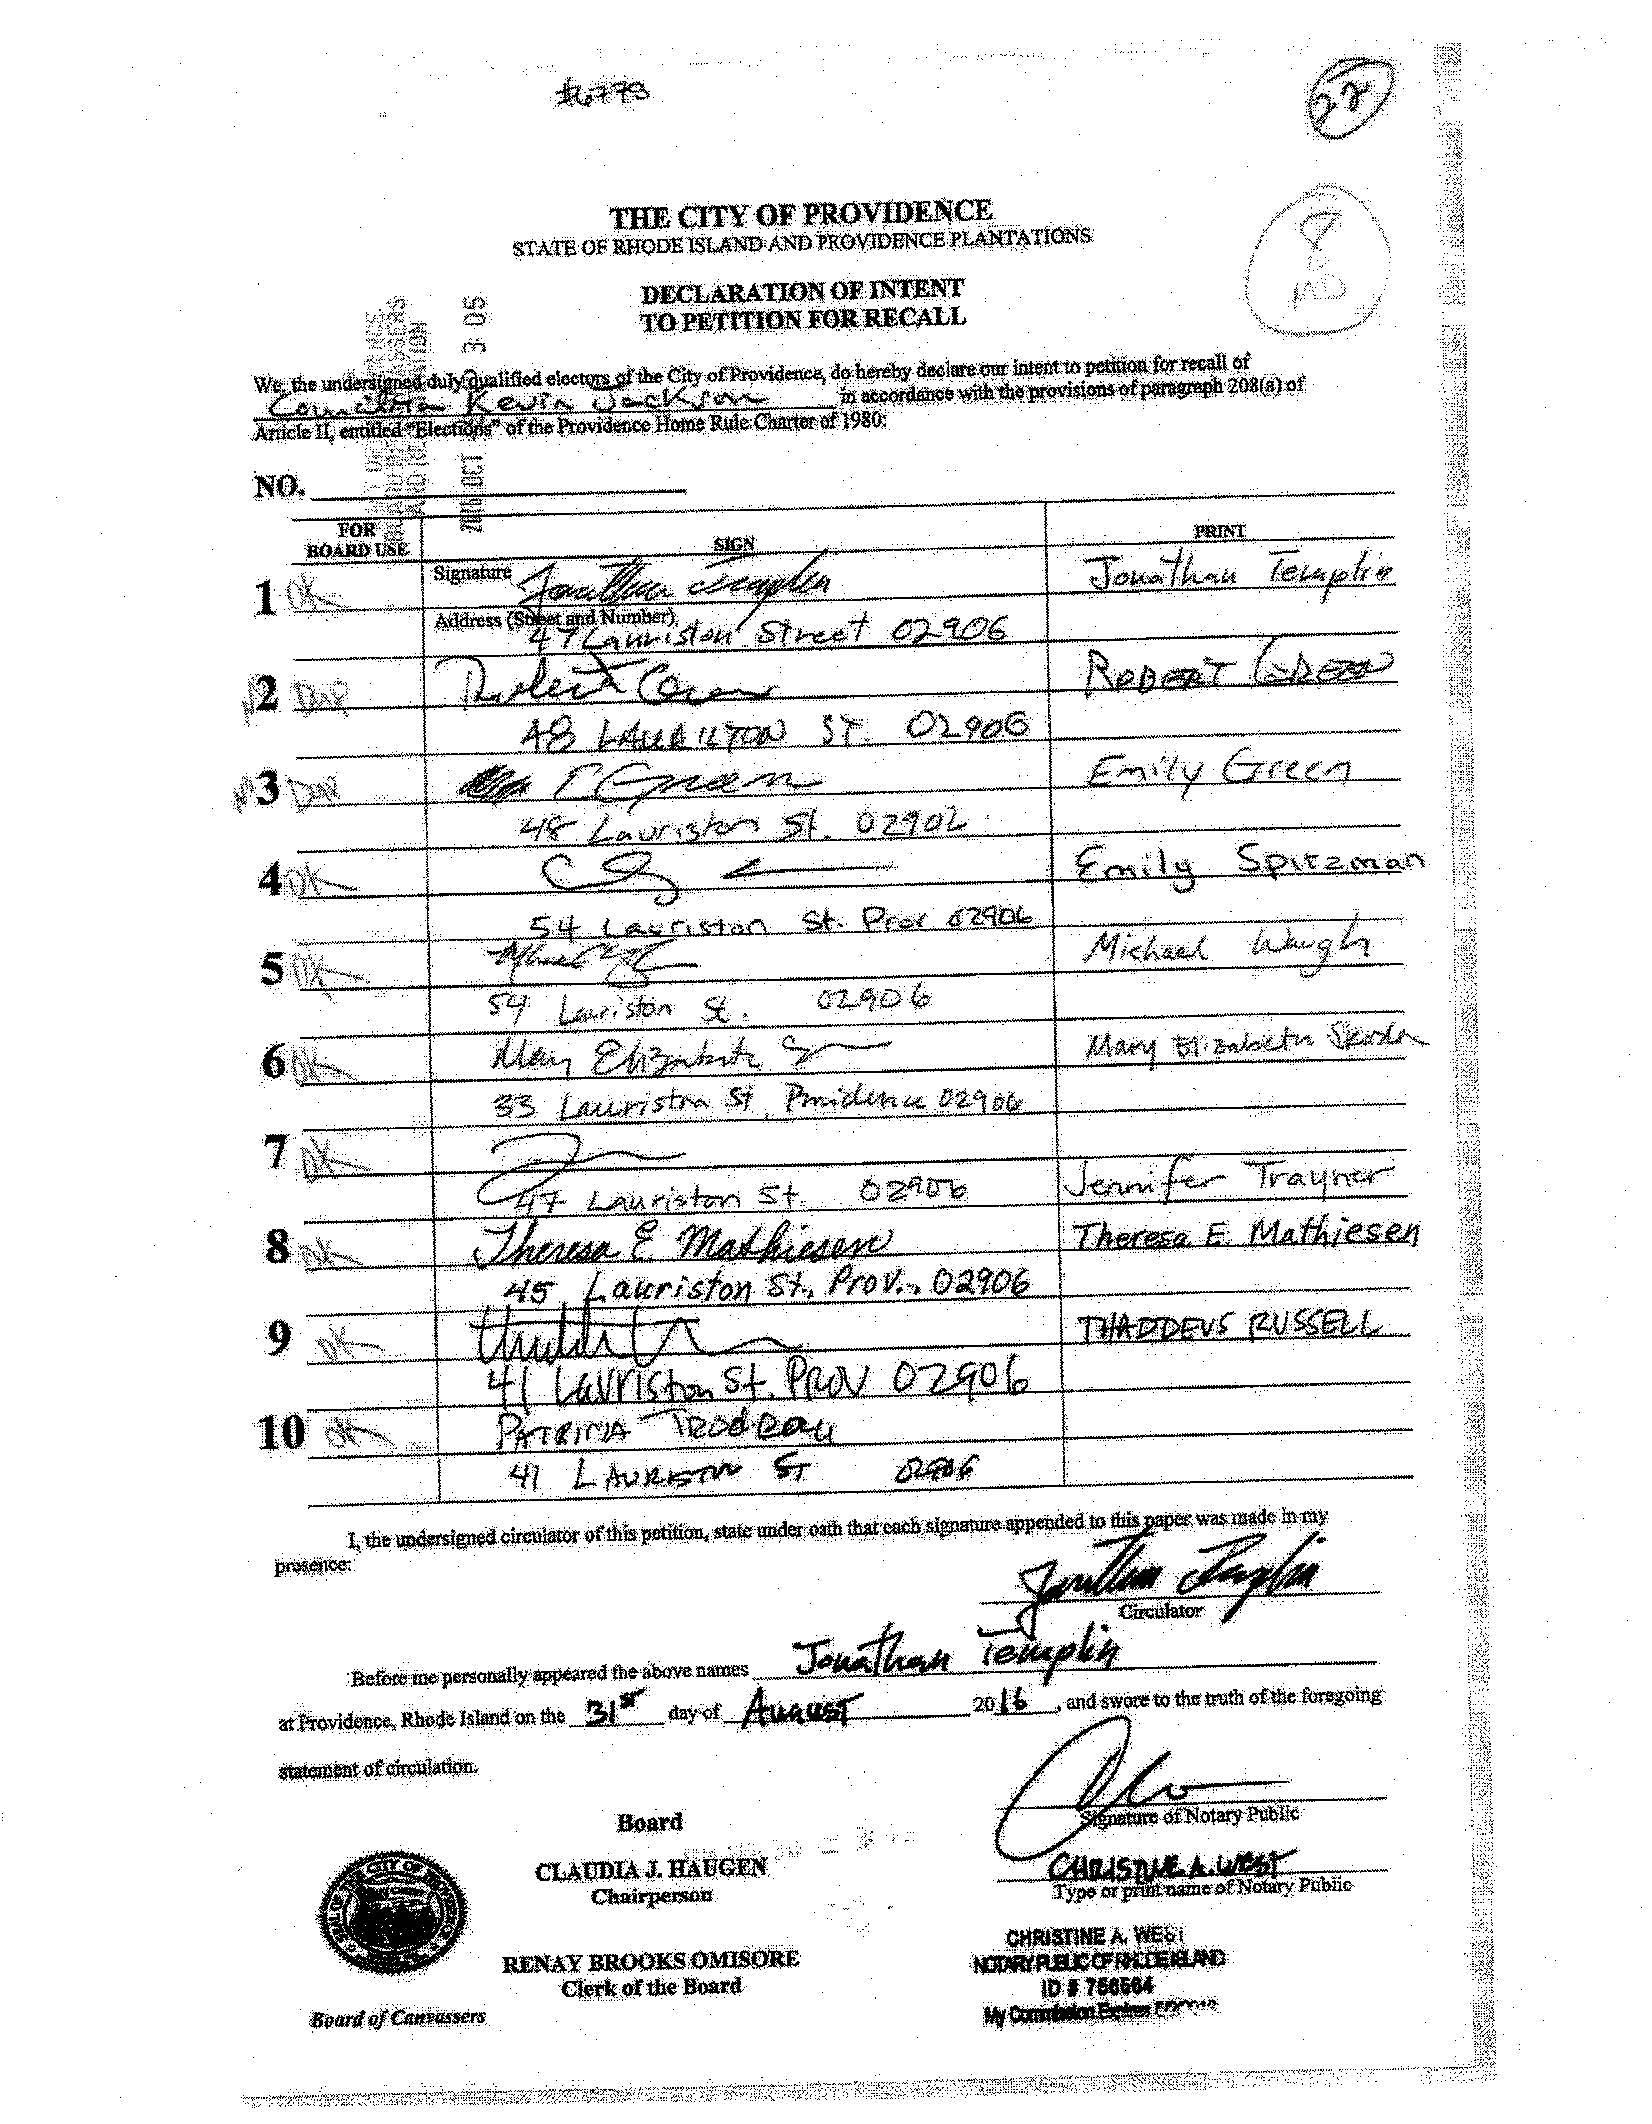 #6773
22
8
THE CITY OF PROVIDENCE
STATE OF RHODE ISLAND AND PROVIDENCE PLANTATIONS
DECLARATION OF INTENT
TO PETITION FOR RECALL
3 05
2016 OCT
We, the undersigned duly qualified electors of the City of Providence, do hereby declare our intent to petition for recall of
Kevin Jackson in accordance with the provisions of paragraph 208(a) of
Article II, entitled "Elections" of the Providence Home Rule Charter of 1980:
NO.
FOR BOARD USE SIGN PRINT
1 OK Signature Jonathan Templin Jonathan Templin
Address (Street and Number) 47 Lauriston Street 02906
2 Dup Robert Green ROBERT GREEN
48 LAURISTON ST. 02906
3 Dup Green Emily Green
48 Lauriston St. 02906
4 OK Emily Spitzman
54 Lauriston St. Prov 02906
5 OK Michael Waugh
54 Lauriston St. 02906
6 OK Mary Elizabeth Mary Elizabeth
33 Lauriston St, Providence 02906
7 OK Jennifer Trayner
47 Lauriston St. 02906
8 OK Theresa E Mathiesen Theresa E. Mathiesen
45 Lauriston St., Prov., 02906
9 OK THADDEUS RUSSELL
41 Lauriston St. PROV 02906
10 OK PATRICIA
41 LAURISTON ST 02906
I, the undersigned circulator of this petition, state under oath that each signature appended to this paper was made in my
presence:
Jonathan Templin
Circulator
Before me personally appeared the above names Jonathan Templin
at Providence, Rhode Island on the 31st day of August 2016, and swore to the truth of the foregoing
statement of circulation.
Signature of Notary Public
Board
CLAUDIA J. HAUGEN
Chairperson
CHRISTINE A. WEST
Type or print name of Notary Public
RENAY BROOKS OMISORE
Clerk of the Board
CHRISTINE A. WEST
NOTARY PUBLIC OF RHODE ISLAND
ID # 756564
My Commission Expires
Board of Canvassers